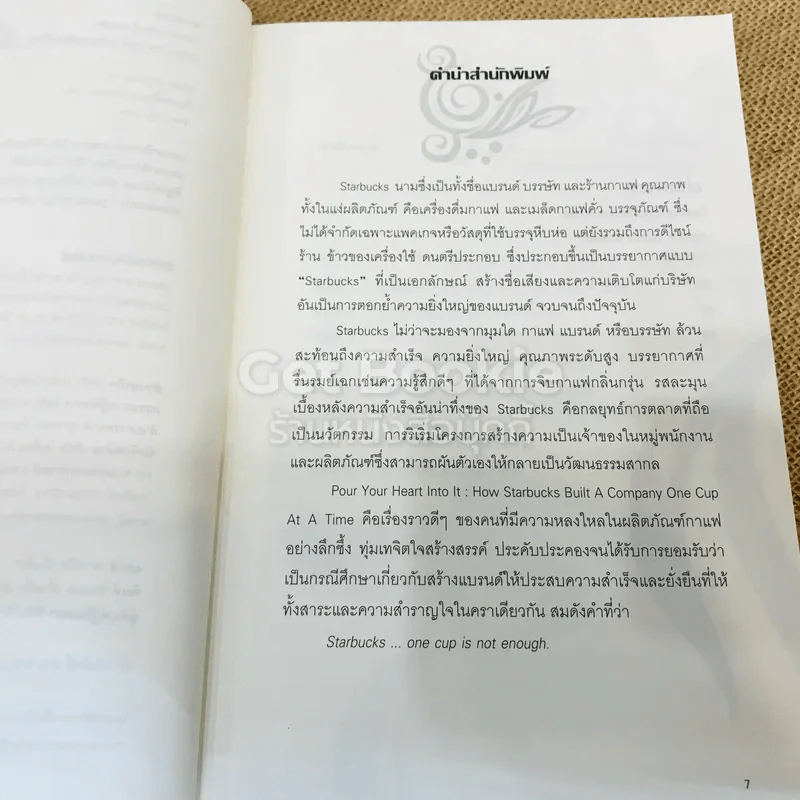 คำนำสำนักพิมพ์
Starbucks นามซึ่งเป็นทั้งชื่อแบรนด์ บริษัท และร้านกาแฟ คุณภาพ
ทั้งในแง่ผลิตภัณฑ์ คือเครื่องดื่มกาแฟ และเมล็ดกาแฟคั่ว บรรจุภัณฑ์ ซึ่ง
ไม่ได้จำกัดเฉพาะแพคเกจหรือวัสดุที่ใช้บรรจุหีบห่อ แต่ยังรวมถึงการดีไซน์
ร้าน ข้าวของเครื่องใช้ ดนตรีประกอบ ซึ่งประกอบขึ้นเป็นบรรยากาศแบบ
“Starbucks” ที่เป็นเอกลักษณ์ สร้างชื่อเสียงและความเติบโตแก่บริษัท
อันเป็นการตอกย้ำความยิ่งใหญ่ของแบรนด์ จวบจนถึงปัจจุบัน
Starbucks ไม่ว่าจะมองจากมุมใด กาแฟ แบรนด์ หรือบริษัท ล้วน
สะท้อนถึงความสำเร็จ ความยิ่งใหญ่ คุณภาพระดับสูง บรรยากาศที่
รื่นรมย์เฉกเช่นความรู้สึกดีๆ ที่ได้จากการจิบกาแฟกลิ่นกรุ่น รสละมุน
เบื้องหลังความสำเร็จอันน่าทึ่งของ Starbucks คือกลยุทธ์การตลาดที่ถือ
เป็นนวัตกรรม การริเริ่มโครงการสร้างความเป็นเจ้าของในหมู่พนักงาน
และผลิตภัณฑ์ซึ่งสามารถผันตัวเองให้กลายเป็นวัฒนธรรมสากล
Pour Your Heart Into It : How Starbucks Built A Company One Cup
At A Time คือเรื่องราวดีๆ ของคนที่มีความหลงใหลในผลิตภัณฑ์กาแฟ
อย่างลึกซึ้ง ทุ่มเทจิตใจสร้างสรรค์ ประคับประคองจนได้รับการยอมรับว่า
เป็นกรณีศึกษาเกี่ยวกับสร้างแบรนด์ให้ประสบความสำเร็จและยั่งยืนที่ให้
ทั้งสาระและความสำราญใจในคราเดียวกัน สมดังคำที่ว่า
Starbucks ... one cup is not enough.
7
Get Bookie
ร้านหนังสือมือถือ